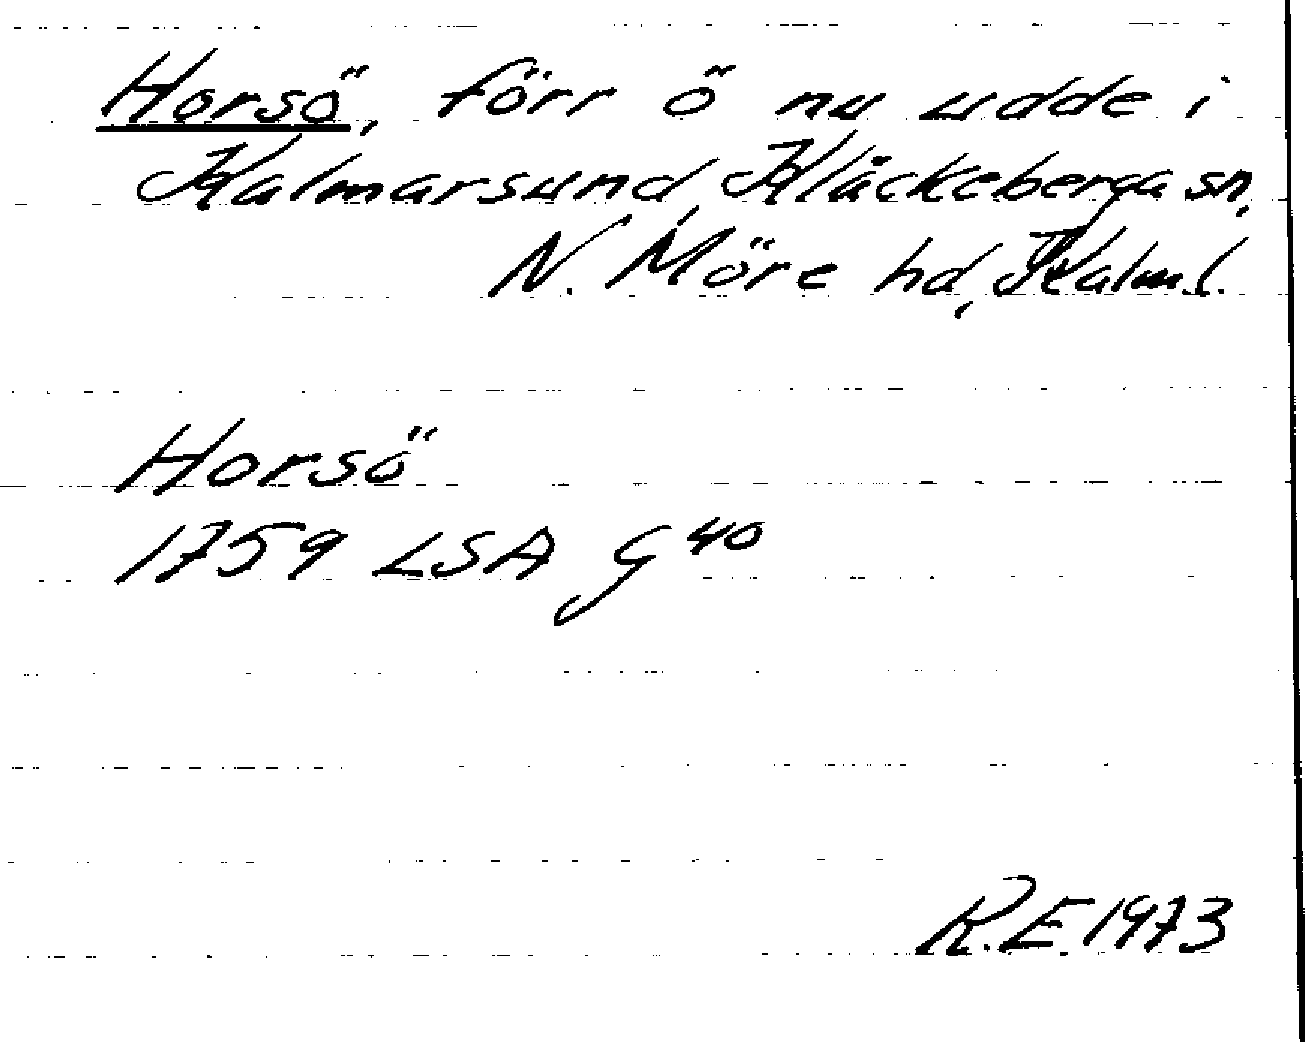 Horsö, förr ö nu udde i
Kalmarsund, Kläckeberga sn,
N. Möre hd, Kalm l.
Horsö
1759 LSA G 40
R.E. 1973